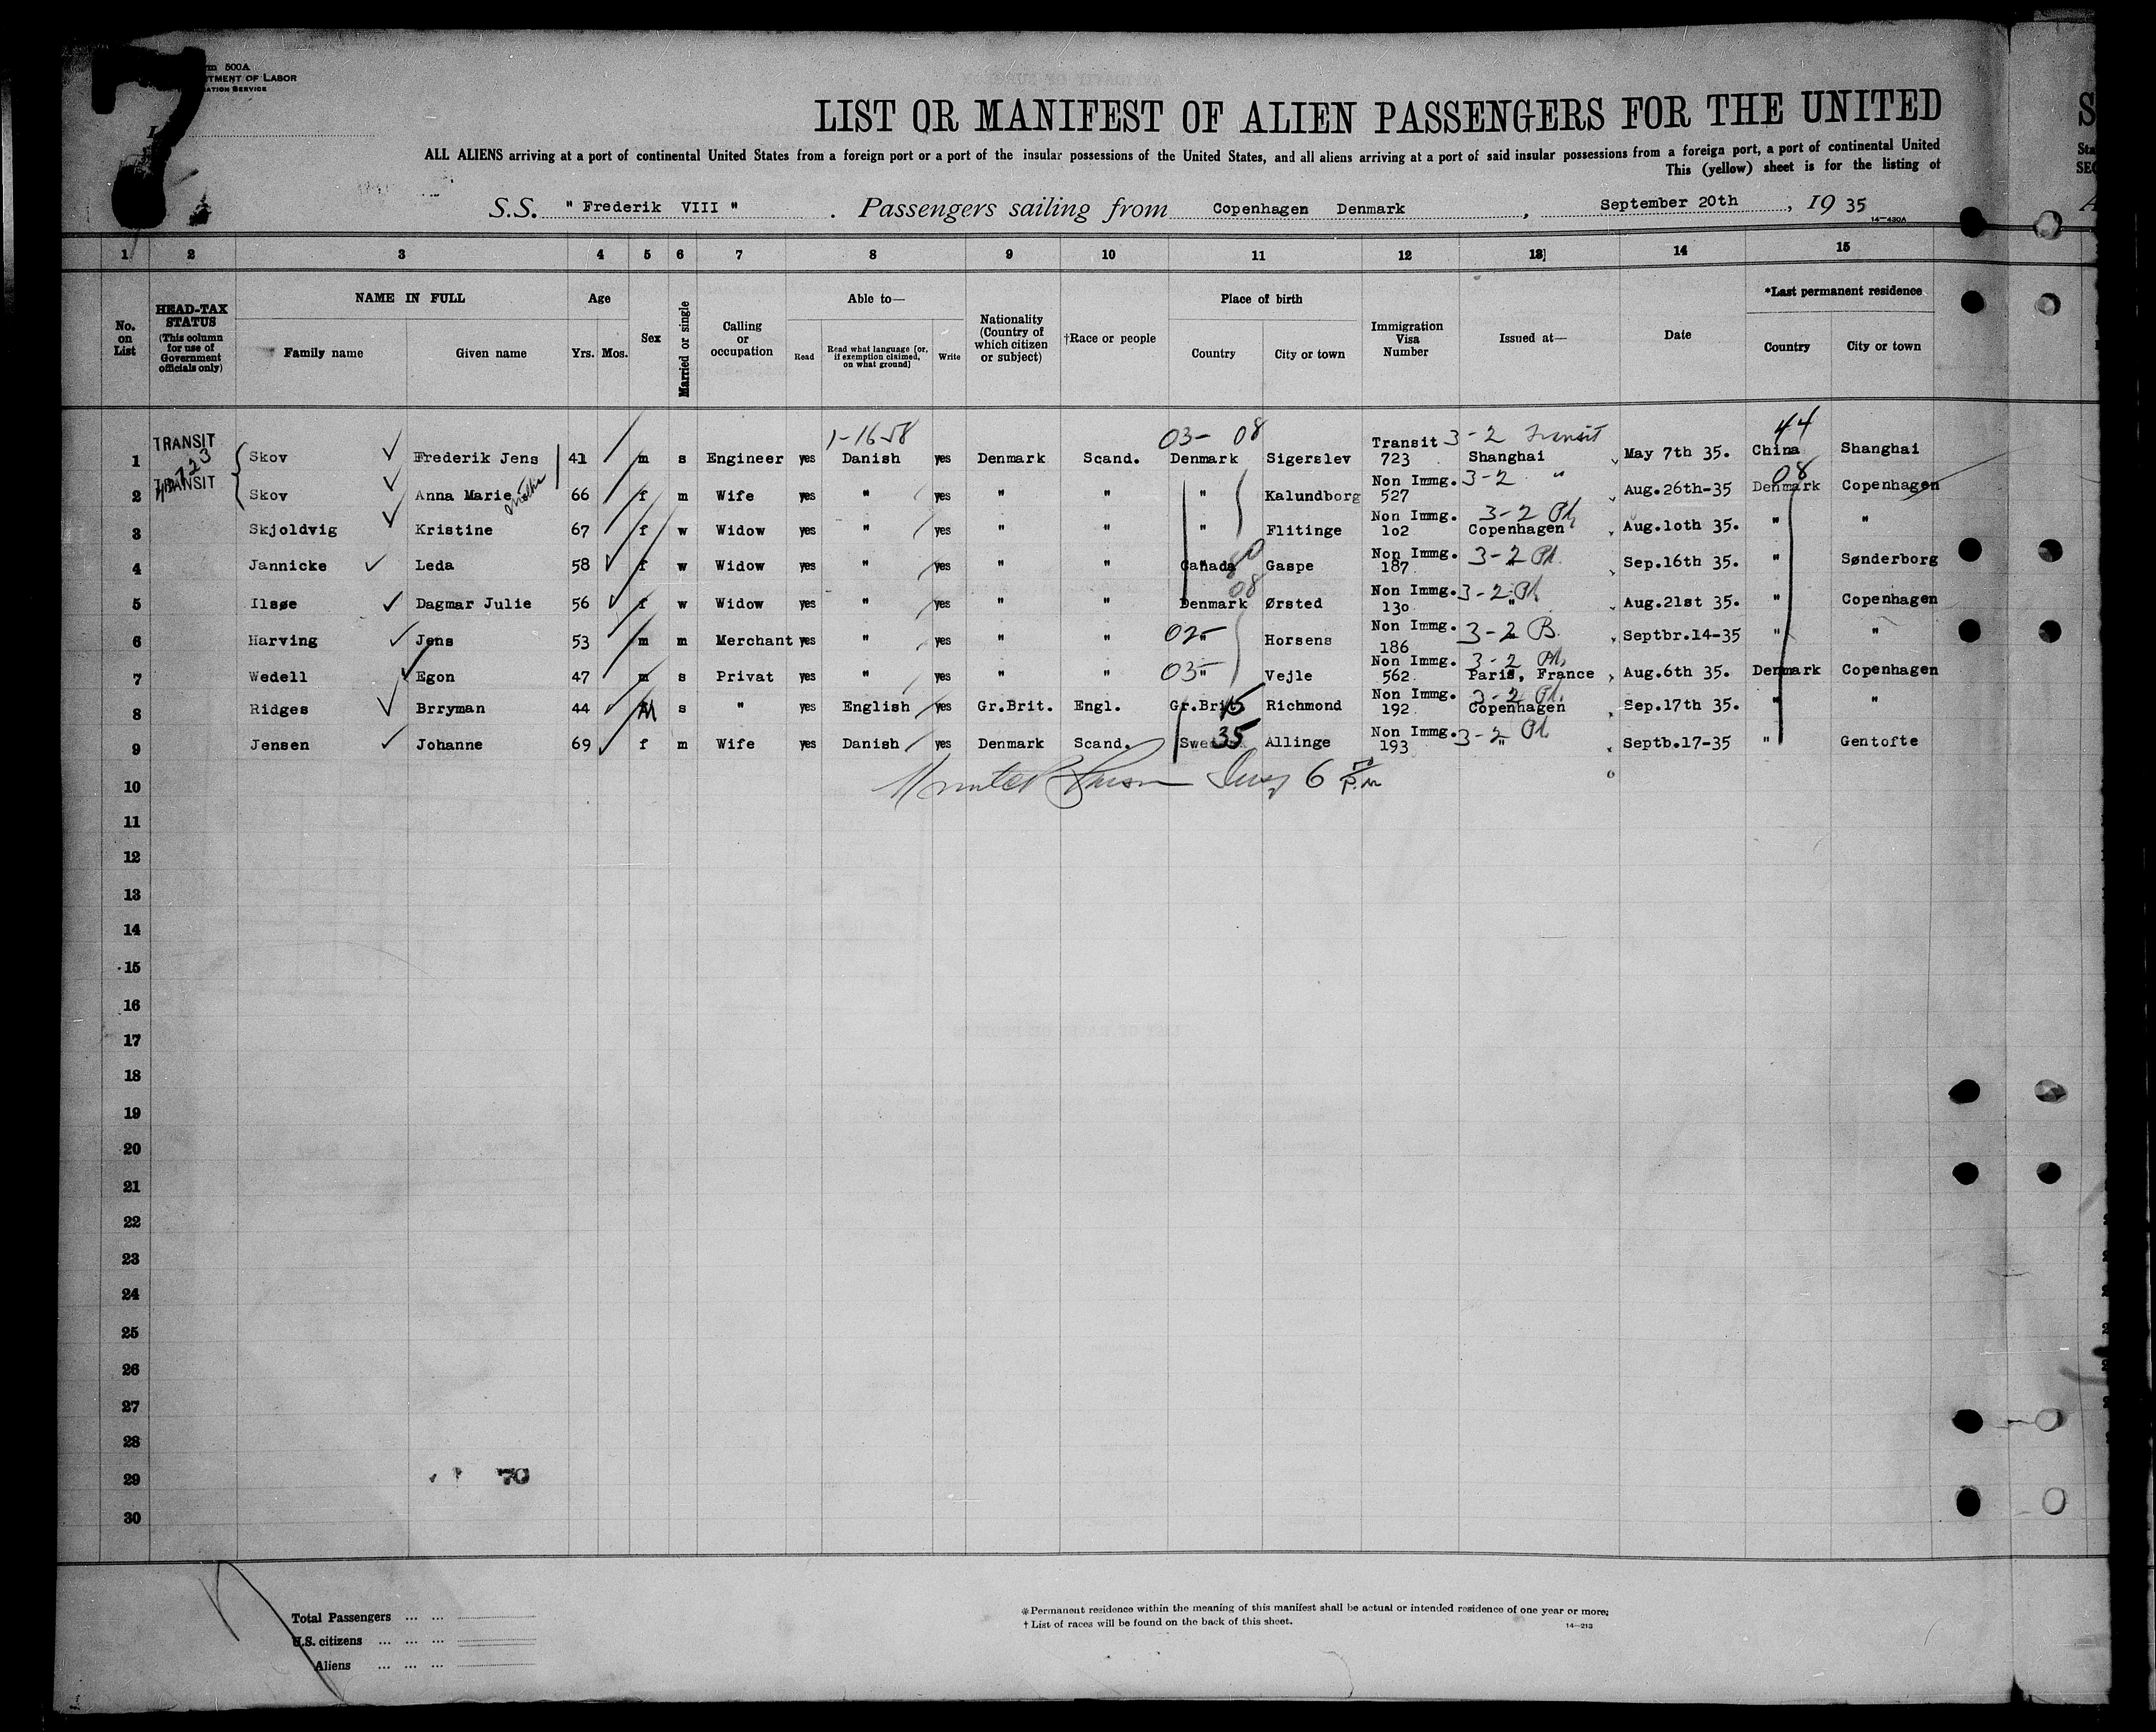 7
rm 500A
TMENT OF LABOR
ATION SERVICE
LIST OR MANIFEST OF ALIEN PASSENGERS FOR THE UNITED
ALL ALIENS arriving at a port of continental United States from a foreign port or a port of the insular possessions of the United States, and all aliens arriving at a port of said insular possessions from a foreign port, a port of continental United
This (yellow) sheet is for the listing of
S.S. " Frederik VIII " . Passengers sailing from Copenhagen Denmark , September 20th , 19 35
14—430A
1 2 3 4 5 6 7 8 9 10 11 12 13 14 15
No. on List
HEAD-TAX STATUS (This column for use of Government officials only)
NAME IN FULL
Family name Given name
Age
Yrs. Mos.
Sex
Married or single
Calling or occupation
Able to—
Read Read what language [or, if exemption claimed, on what ground] Write
Nationality (Country of which citizen or subject)
†Race or people
Place of birth
Country City or town
Immigration Visa Number
Issued at—
Date
*Last permanent residence
Country City or town
1-1658 03- 08 44
1 TRANSIT Skov Frederik Jens 41 m s Engineer yes Danish yes Denmark Scand. Denmark Sigerslev Transit 723 3-2 Transit Shanghai May 7th 35. China Shanghai
2 TRANSIT Skov Anna Marie 66 f m Wife yes " yes " " " Kalundborg Non Immg. 527 3-2 " Aug.26th-35 08 Denmark Copenhagen
3 Skjoldvig Kristine 67 f w Widow yes " yes " " " Flitinge Non Immg. 1o2 3-2 Copenhagen Aug.1oth 35. " "
4 Jannicke Leda 58 f w Widow yes " yes " " Canada Gaspe Non Immg. 187 3-2 Sep.16th 35. " Sønderborg
5 Ilsøe Dagmar Julie 56 f w Widow yes " yes " " 08 Denmark Ørsted Non Immg. 13o 3-2 " Aug.21st 35. " Copenhagen
6 Harving Jens 53 m m Merchant yes " yes " " 02- " Horsens Non Immg. 186 3-2 B. Septbr.14-35 " "
7 Wedell Egon 47 m s Privat yes " yes " " 03- " Vejle Non Immg. 562 3-2 Paris, France Aug.6th 35. Denmark Copenhagen
8 Ridges Brryman 44 M s " yes English yes Gr.Brit. Engl. Gr.Brit 15 Richmond Non Immg. 192 3-2 Copenhagen Sep.17th 35. " "
9 Jensen Johanne 69 f m Wife yes Danish yes Denmark Scand. 35 Allinge Non Immg. 193 3-2 " Septb.17-35 " Gentofte
10
11
12
13
14
15
16
17
18
19
20
21
22
23
24
25
26
27
28
29 70
30
Total Passengers ... ...
U.S. citizens ... ... ...
Aliens ... ... ...
*Permanent residence within the meaning of this manifest shall be actual or intended residence of one year or more;
† List of races will be found on the back of this sheet.
14—213